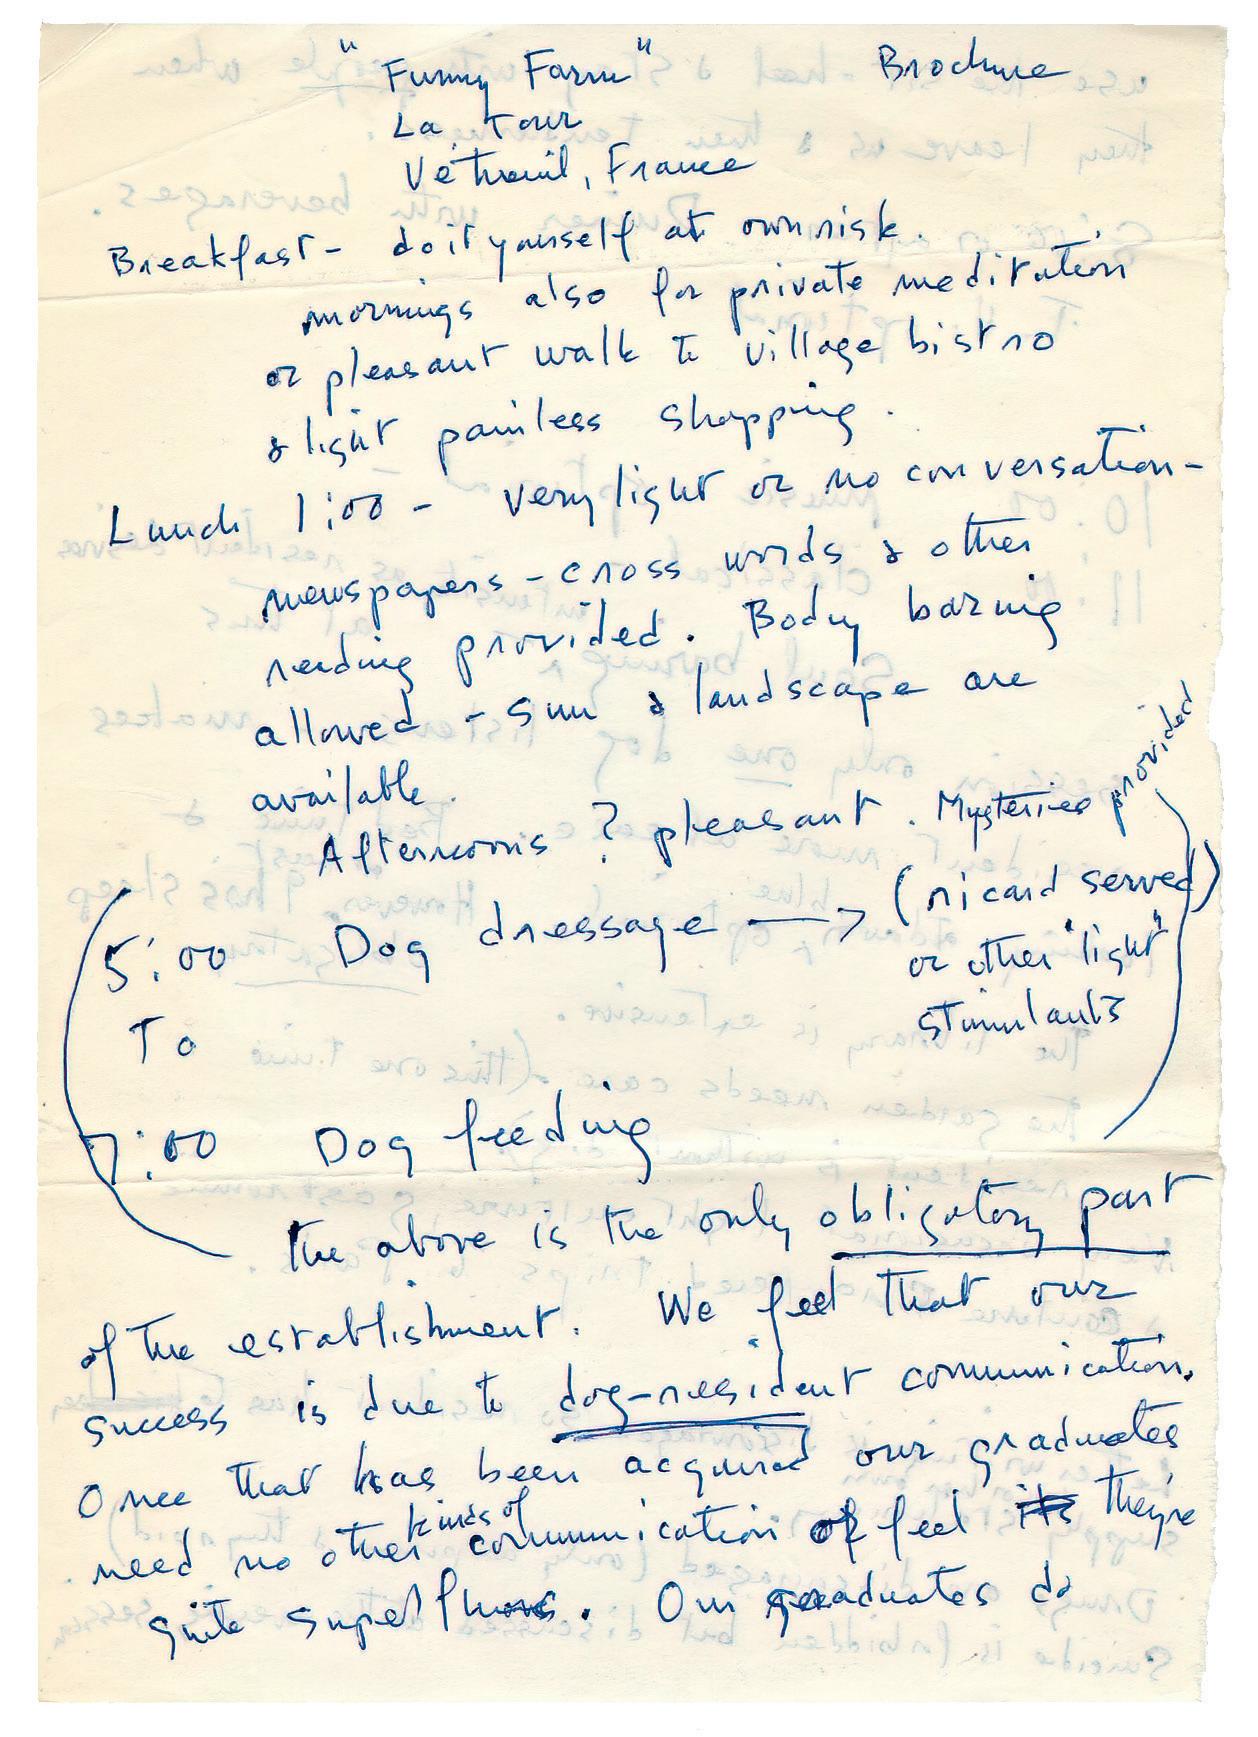 "Funny Farm" Brochure
La Tour
Vétheuil, France
Breakfast - do it yourself at own risk.
mornings also for private meditation
or pleasant walk to village bistro
& light painless shopping.
Lunch 1:00 - very light or no conversation -
newspapers - cross words & other
reading provided. Body baring
allowed - sun & landscape are
available.
Afternoons ? pleasant. Mysteries provided
5:00 Dog dressage → (ricard served)
or other "light"
stimulants
To
7:00 Dog feeding
the above is the only obligatory part
of the establishment. We feel that our
success is due to dog-resident communication.
Once that has been acquired our graduates
need no other kinds of communication or feel its they're
quite superfluous. Our graduates do